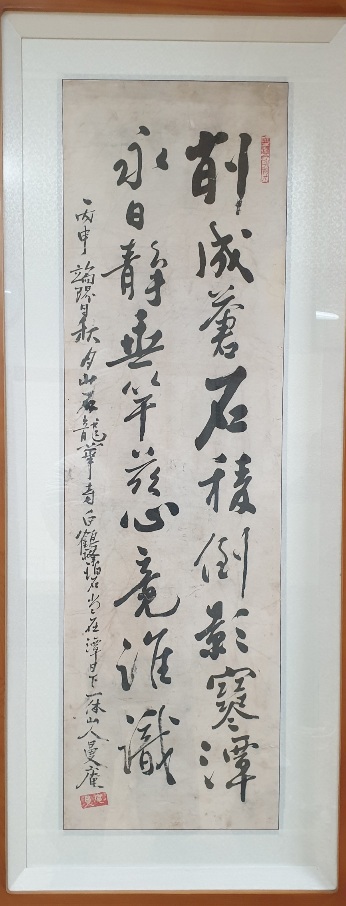 削成蒼石稜倒影寒潭
永日靜垂竿茲心竟誰識
丙申端陽日秋月山龍華寺白鶴碧當在潭下一休山人曼庵